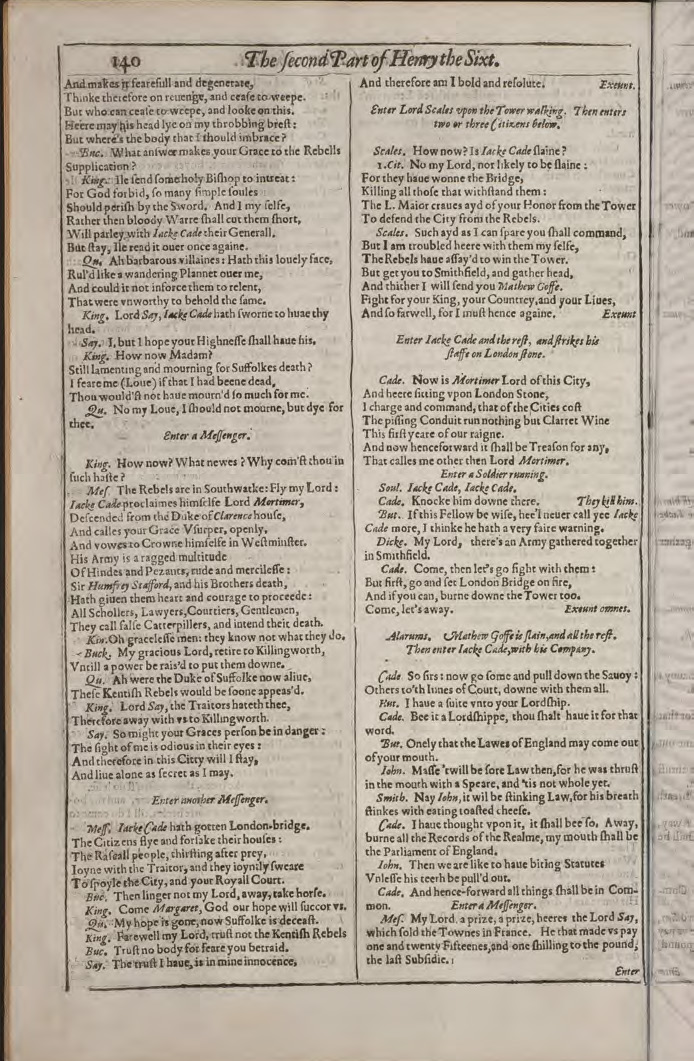 140
The second Part of Henry the Sixt.
And makes it fearefull and degenerate,
Thinke therefore on reuenge, and cease to weepe.
But who can cease to weepe, and looke on this.
Heere may his head lye on my throbbing brest:
But where's the body that I should imbrace?
Buc. What answer makes your Grace to the Rebells
Supplication?
King. Ile send some holy Bishop to intreat:
For God forbid, so many simple soules
Should perish by the Sword. And I my selfe,
Rather then bloody Warre shall cut them short,
Will parley with Iacke Cade their Generall.
But stay, Ile read it ouer once againe.
Qu. Ah barbarous villaines: Hath this louely face,
Rul'd like a wandering Plannet ouer me,
And could it not inforce them to relent,
That were vnworthy to behold the same.
King. Lord Say, Iacke Cade hath sworne to huae thy
head.
Say. I, but I hope your Highnesse shall haue his.
King. How now Madam?
Still lamenting and mourning for Suffolkes death?
I feare me (Loue) if that I had beene dead,
Thou would'st not haue mourn'd so much for me.
Qu. No my Loue, I should not mourne, but dye for
thee.
Enter a Messenger.
King. How now? What newes? Why com'st thou in
such haste?
Mes. The Rebels are in Southwarke: Fly my Lord:
Iacke Cade proclaimes himselfe Lord Mortimer,
Descended from the Duke of Clarence house,
And calles your Grace Vsurper, openly,
And vowes to Crowne himselfe in Westminster.
His Army is a ragged multitude
Of Hindes and Pezants, rude and mercilesse:
Sir Humfrey Stafford, and his Brothers death,
Hath giuen them heart and courage to proceede:
All Schollers, Lawyers, Courtiers, Gentlemen,
They call false Catterpillers, and intend their death.
Kin. Oh gracelesse men: they know not what they do.
Buck. My gracious Lord, retire to Killingworth,
Vntill a power be rais'd to put them downe.
Qu. Ah were the Duke of Suffolke now aliue,
These Kentish Rebels would be soone appeas'd.
King. Lord Say, the Traitors hateth thee,
Therefore away with vs to Killingworth.
Say. So might your Graces person be in danger:
The sight of me is odious in their eyes:
And therefore in this Citty will I stay,
And liue alone as secret as I may.
Enter another Messenger.
Mess. Iacke Cade hath gotten London-bridge.
The Citizens flye and forsake their houses:
The Rascall people, thirsting after prey,
Ioyne with the Traitor, and they ioyntly sweare
To spoyle the City, and your Royall Court.
Buc. Then linger not my Lord, away, take horse.
King. Come Margaret, God our hope will succor vs.
Qu. My hope is gone, now Suffolke is deceast.
King. Farewell my Lord, trust not the Kentish Rebels
Buc. Trust no body for feare you betraid.
Say. The trust I haue, is in mine innocence,
And therefore am I bold and resolute. Exeunt.
Enter Lord Scales vpon the Tower walking. Then enters
two or three Citizens below.
Scales. How now? Is Iacke Cade slaine?
1.Cit. No my Lord, nor likely to be slaine:
For they haue wonne the Bridge,
Killing all those that withstand them:
The L. Maior craues ayd of your Honor from the Tower
To defend the City from the Rebels.
Scales. Such ayd as I can spare you shall command,
But I am troubled heere with them my selfe,
The Rebels haue assay'd to win the Tower.
But get you to Smithfield, and gather head,
And thither I will send you Mathew Goffe.
Fight for your King, your Countrey, and your Liues,
And so farwell, for I must hence againe. Exeunt
Enter Iacke Cade and the rest, and strikes his
staffe on London stone.
Cade. Now is Mortimer Lord of this City,
And heere sitting vpon London Stone,
I charge and command, that of the Cities cost
The pissing Conduit run nothing but Clarret Wine
This first yeare of our raigne.
And now henceforward it shall be Treason for any,
That calles me other then Lord Mortimer.
Enter a Soldier running.
Soul. Iacke Cade, Iacke Cade.
Cade. Knocke him downe there. They kill him.
But. If this Fellow be wise, hee'l neuer call yee Iacke
Cade more, I thinke he hath a very faire warning.
Dicke. My Lord, there's an Army gathered together
in Smithfield.
Cade. Come, then let's go fight with them:
But first, go and set London Bridge on fire,
And if you can, burne downe the Tower too.
Come, let's away. Exeunt omnes.
Alarums. Mathew Goffe is slain, and all the rest.
Then enter Iacke Cade, with his Company.
Cade. So sirs: now go some and pull down the Sauoy:
Others to'th Innes of Court, downe with them all.
But. I haue a suite vnto your Lordship.
Cade. Bee it a Lordshippe, thou shalt haue it for that
word.
But. Onely that the Lawes of England may come out
of your mouth.
Iohn. Masse 'twill be sore Law then, for he was thrust
in the mouth with a Speare, and 'tis not whole yet.
Smith. Nay Iohn, it wil be stinking Law, for his breath
stinkes with eating toasted cheese.
Cade. I haue thought vpon it, it shall bee so. Away,
burne all the Records of the Realme, my mouth shall be
the Parliament of England.
Iohn. Then we are like to haue biting Statutes
Vnlesse his teeth be pull'd out.
Cade. And hence-forward all things shall be in Com-
mon. Enter a Messenger.
Mes. My Lord, a prize, a prize, heeres the Lord Say,
which sold the Townes in France. He that made vs pay
one and twenty Fifteenes, and one shilling to the pound,
the last Subsidie.
Enter